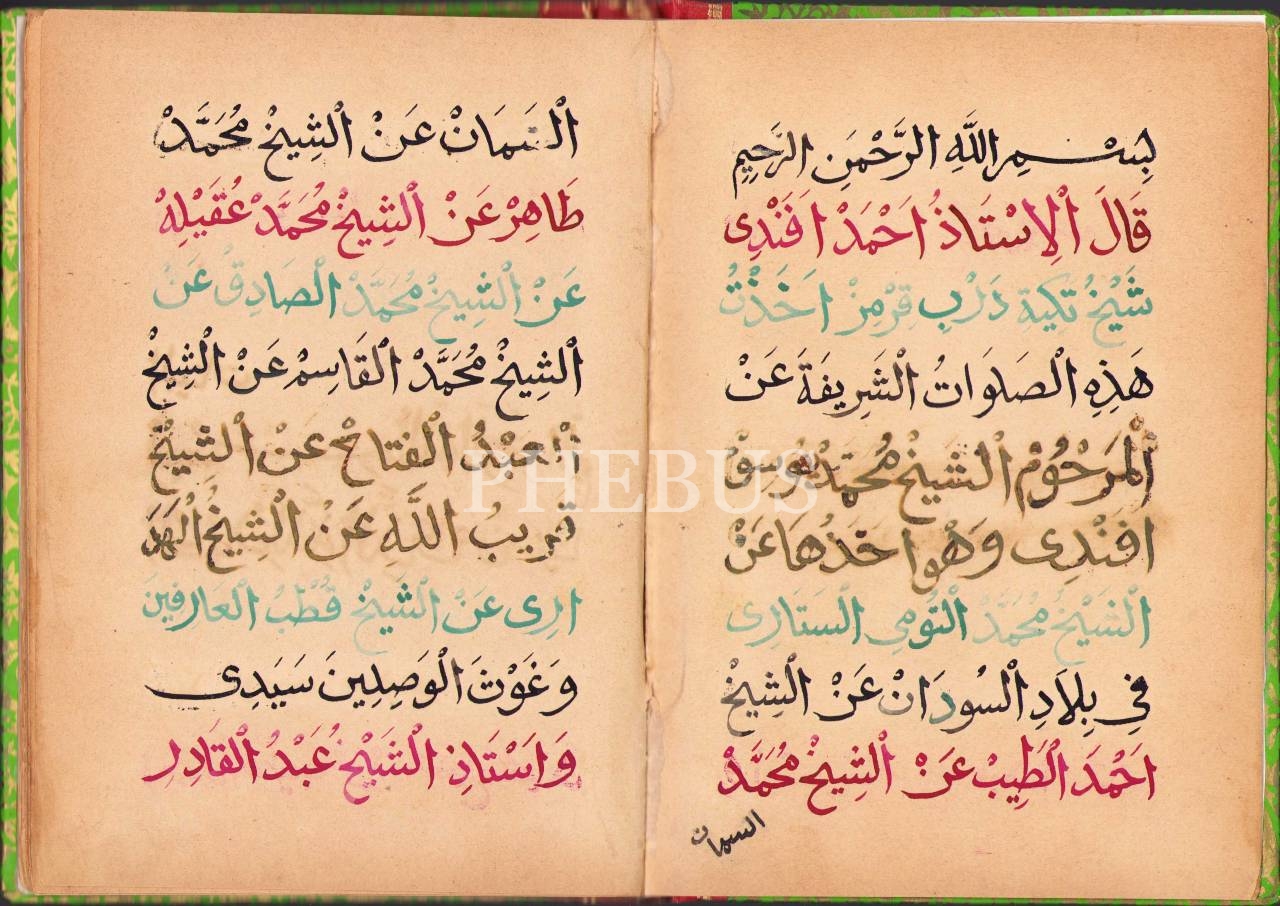 بِسْمِ اللَّهِ الرَّحْمَنِ الرَّحِيمِ
قَالَ الْاِسْتَاذُ اَحْمَدْ اَفَنْدِى
شَيْخُ تكيَةِ دَرْبِ قِرْمِزْ اَخَذْتُ
هَذِهِ الْصَلَوَاتُ الْشَرِيفَةَ عَنْ
الْمَرْحُوْمْ الْشَيخْ مُحَمَّدْ يُوسِفْ
افَنْدِى وَهْوا خَذُهَا عَنْ
الْشَيْخُ مُحَمَّدْ الْتُومِى الْسَتَارِى
فِى بِلَادِ الْسُودَانْ عَنْ الْشِيخْ
اَحْمَدَ الْطَيِبْ عَنْ الْشِيخْ مُحَمَّدْ
السمان
الْسَمَانْ عَنْ الْشِيخْ مُحَمَّدْ
طَاهِرْ عَنْ الْشِيخْ مُحَمَّدْ عُقَيْلِهْ
عَنْ الْشِيخْ مُحَمَّدْ الْصَادِقْ عَنْ
الْشِيخْ مُحَمَّدْ الْقَاسِمْ عَنْ الْشِيخْ
الْفِتَاحْ عَنْ الْشِيخْ
قَرِيبُ اللَّهِ عَنْ الْشِيخُ الْهَدَ
ارِى عَنْ الْشَيخْ قُطْبُ الْعَارِفِينَ
وَغَوْثَ الْوَصِلِينَ سَيَدِى
وَاَسْتَاذِ الْشَيْخْ عَبْدُ الْقَادِر
PHEBUS